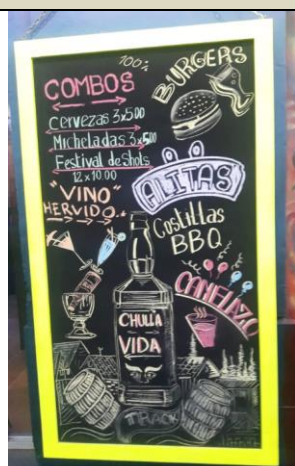 100%
BURGERS
COMBOS
Cervezas 3x5.00
Micheladas 3x5.00
Festival de Shots
12x10.00
"VINO"
HERVIDO..
ALITAS
Costillas
BBQ
CANELAZO
CHULLA
VIDA
TRAGO